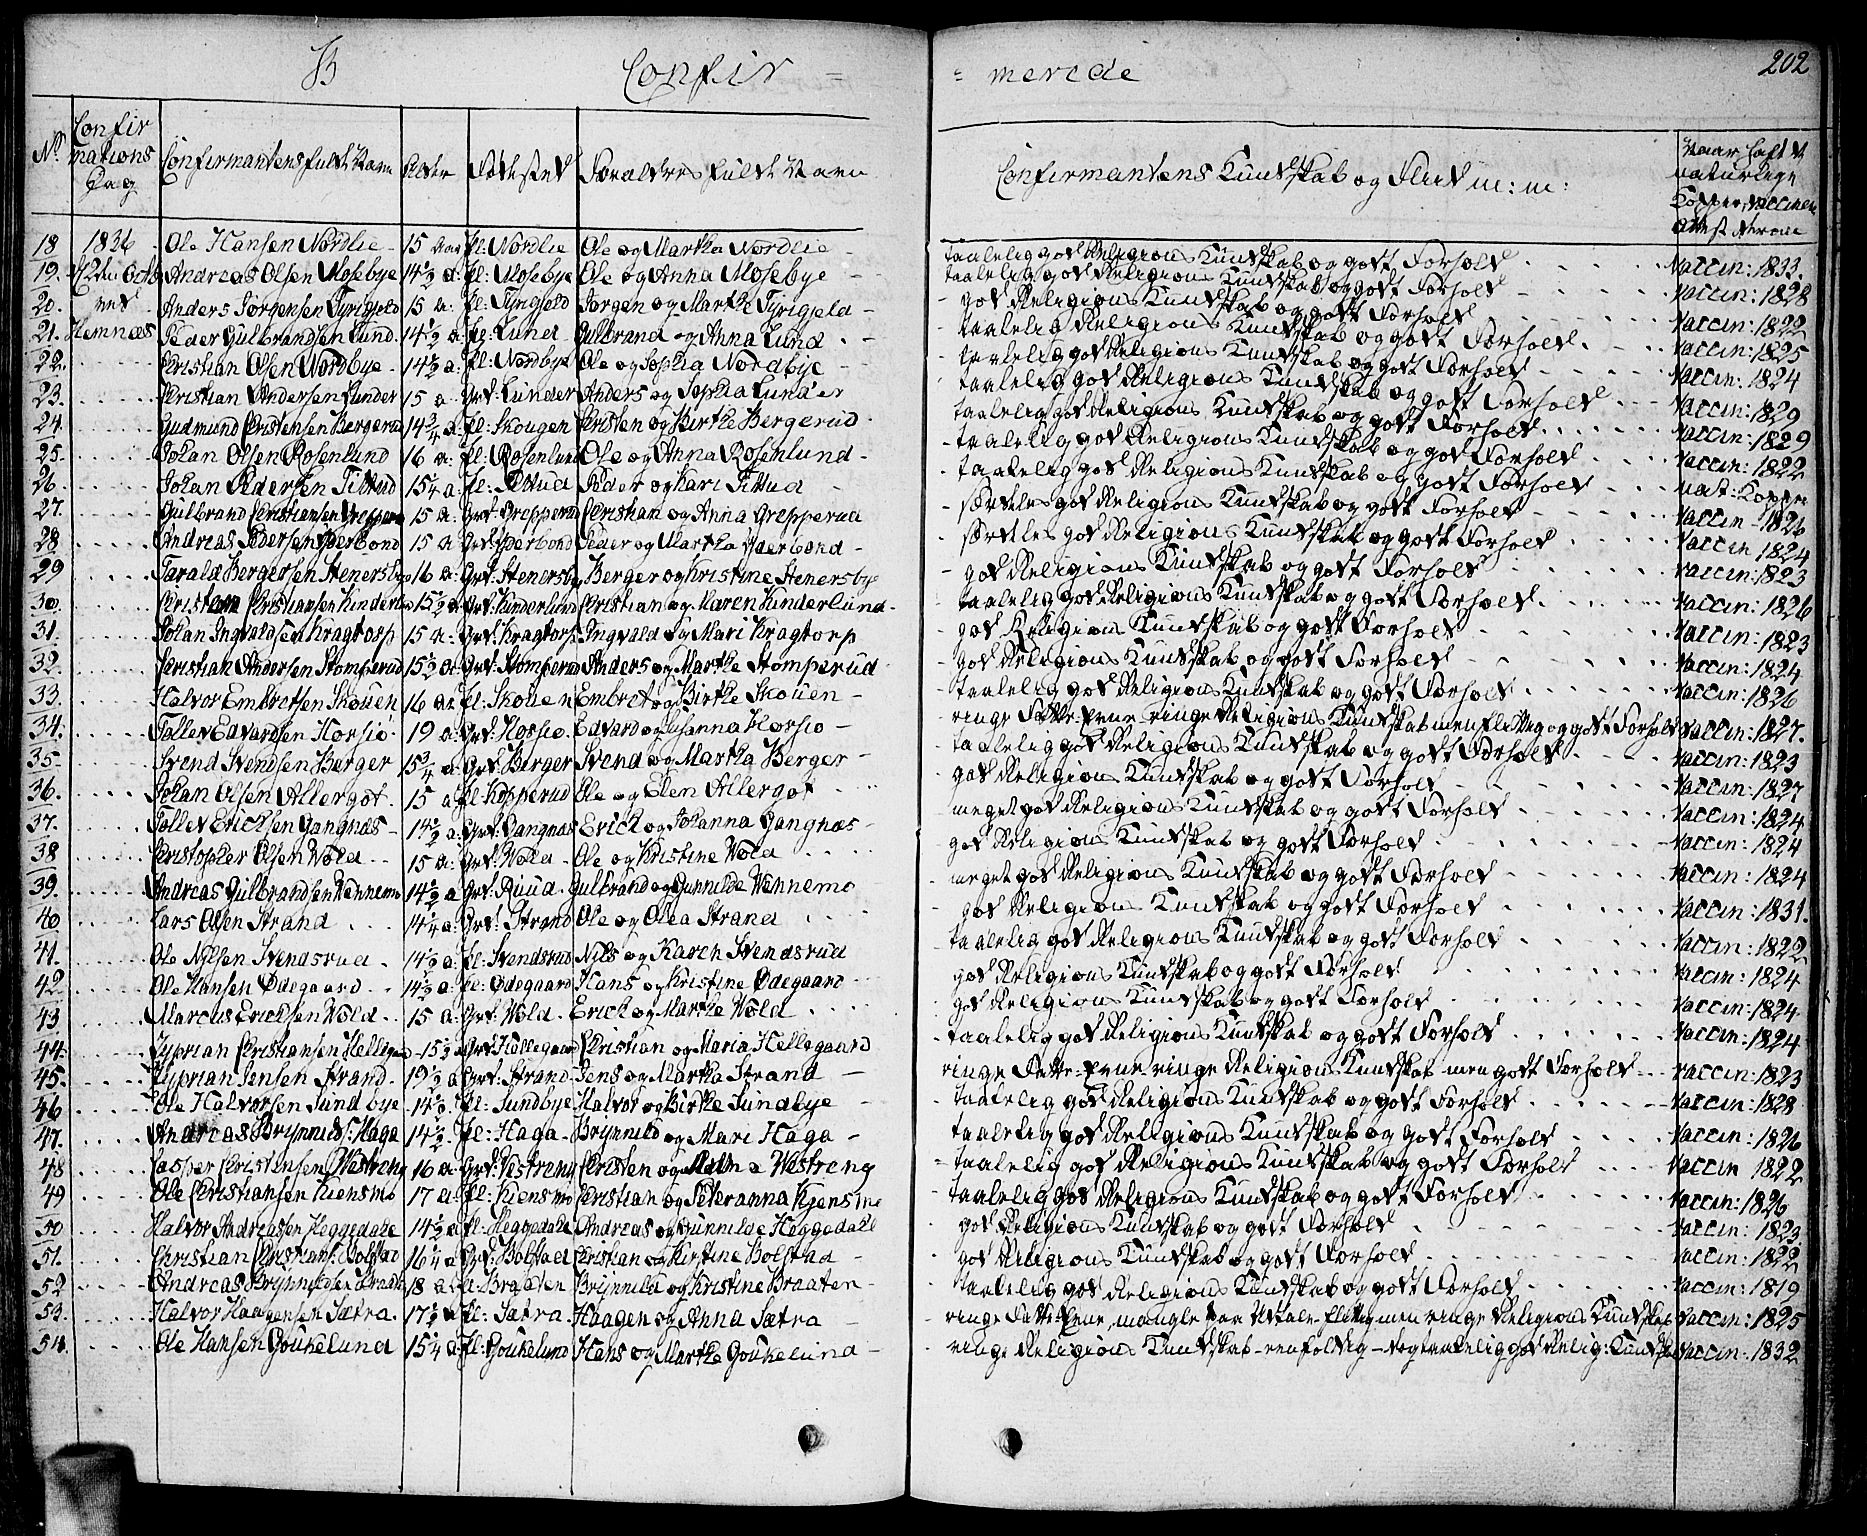 B Confir =
= merede 202
No. Confirmations Dag Confirmantens fulde Navn Alder Fødested Forældres fulde Navn
Confirmantens Kundskab og Flid m: m: Naar haft de naturlige Kopper, Vaccineret
18 1836 Ole Hansen Nordlie 15 Aar fl: Nordlie Ole og Martha Nordlie taalelig god Religions Kundskab og godt Forhold Vaccin: 1833.
19. Andreas Olsen Mosebye 14½ a: fl: Mosebye Ole og Anna Mosebye taalelig god Religions Kundskab og godt Forhold Vaccin: 1828
20. Anders Jørgensen Tyrigjeld 15 a: fl: Tyrigjeld Jørgen og Marthe Tyrigjeld god Religions Kundskab og godt Forhold Vaccin: 1822
21. Hemnæs Peder Gulbrandsen Lund 14½ a fl: Lund Gulbrand og Anna Lund taalelig Religions Kundskab og godt Forhold Vaccin: 1825
22. Christian Olsen Nordbye 14½ a: fl: Nordbye Ole og Sophia Nordbye taalelig god Religions Kundskab og godt Forhold Vaccin: 1824
23. Christian Andersen Lunder 15 a Grd: Lunder Anders og Sophia Lunder taalelig god Religions Kundskab og godt Forhold Vaccin: 1829
24. Gudmund Christensen Bergerud 14¾ a. fl: Skougen Christen og Birthe Bergerud taalelig god Religions Kundskab og godt Forhold Vaccin: 1829
25. Johan Olsen Rosenlund 16 a: fl: Rosenlund Ole og Anna Rosenlund taalelig god Religions Kundskab og god Forhold Vaccin: 1822
26. Johan Pedersen Tittud 15¼ a: fl: Tittud Peder og Kari Tittud taalelig god Religions Kundskab og godt Forhold nat: Kopper
27. Gulbrand Christiansen Grepperud 15 a: Grd: Grepperud Christian og Anna Grepperud særdeles god Religions Kundskab og godt Forhold Vaccin - 1826
28 Andreas Pedersen 15 a Grd: Peder og Martha særdeles god Religions Kundskab og godt Forhold Vaccin 1824
29 Tarald Bergersen Stenersby 16 a: Grd: Stenersby Berger og Kristine Stenersbye god Religions Kundskab og godt Forhold Vaccin: 1823
30. Christian Christiansen Kinderlund 15½ a Grd: Kinderlund Christian og Karen Kinderlund taalelig god Religions Kundskab og godt Forhold Vaccin: 1826
31. Johan Ingvaldsen Kragtorp 15 a: Grd: Kragtorp Ingvald og Mari Kragtorp god Religions Kundskab og godt Forhold Vaccin: 1823
32. Christian Andersen Stomperud 15½ a: Grd: Stomperud Anders og Marthe Stomperud god Religions Kundskab og godt Forhold Vaccin: 1824
33. Halvor Embretsen Skouen 16 a: fl: Skouen Embret og Birthe Skouen taalelig god Religions Kundskab og godt Forhold Vaccin: 1826
34. Tollev Edvardsen Horsiø 19 a: Grd: Horsiø Edvard og Susanna Horsiø ringe Fatte-Evne ringe Religions Kundskab men flittig og godt Forhold Vaccin: 1827.
35. Svend Svendsen Berger 15¾ a Grd: Berger Svend og Martha Berger taalelig god Religions Kundskab og godt Forhold Vaccin: 1823
36. Johan Olsen Allergot 15 a fl: Kopperud Ole og Elen Allergot god Religions Kundskab og godt Forhold Vaccin: 1827
37. Tollev Ericksen Gangnæs 14½ a: Grd: Gangnæs Erick og Johanna Gangnæs meget god Religions Kundskab og godt Forhold Vaccin: 1824
38 Christopher Olsen Wold 15 a: Grd: Wold Ole og Kristine Wold god Religions Kundskab og godt Forhold Vaccin: 1824
39. Andreas Gulbrandsen Wennemo 14½ a Grd: Ruud Gulbrand og Gunnilde Wennemo meget god Religions Kundskab og godt Forhold Vaccin: 1824
40 Lars Olsen Strand 14¼ a: Grd: Strand Ole og Olea Strand god Religions Kundskab og godt Forhold Vaccin: 1831.
41. Ole Nilsen Svendsrud 14½ a: fl: Svendsrud Nils og Karen Svendsrud taalelig god Religions Kundskab og godt Forhold Vaccin: 1822
42 Ole Hansen Ødegaard 14½ a: fl: Ødegaard Hans og Kristine Ødegaard god Religions Kundskab og godt Forhold Vaccin: 1824
43 Marcus Ericksen Wold 15 a: Grd: Wold Erick og Marthe Wold god Religions Kundskab og godt Forhold Vaccin: 1824
44. Cyprian Christiansen Hellegaard 15½ a Grd: Hellegaard Christian og Maria Hellegaard taalelig god Religions Kundskab og godt Forhold Vaccin: 1824
45. Cyprian Jensen Strand 19½ a Grd: Strand Jens og Martha Strand ringe Fatte-Evne ringe Religions Kundskab men godt Forhold Vaccin: 1823
46 Ole Halvorsen Sundbye 14½ a: fl: Sundbye Halvor og Birthe Sundbye taalelig god Religions Kundskab og godt Forhold Vaccin: 1828
47. Andreas Brynnilds: Haga 14½ a: fl: Haga Brynnild og Mari Haga taalelig god Religions Kundskab og godt Forhold Vaccin: 1826
48 Casper Christensen Westreng 16 a: Grd: Vestreng Christen og Westreng taalelig god Religions Kundskab og godt Forhold Vaccin 1822
49 Ole Christiansen Kiensmo 17 a: fl: Kiensmo Christian og Severanna Kjensmo taalelig god Religions Kundskab og godt Forhold Vaccin: 1826
50 Halvor Andreasen Heggedahl 14½ a fl: Heggedahl Andreas og Gunnilde Heggedahl god Religions Kundskab og godt Forhold Vaccin: 1823
51. Christian Christians: Bolstad 16¼ a Grd: Bolstad Christian og Kirstine Bolstad god Religions Kundskab og godt Forhold Vaccin: 1822
52 Andreas Brynnildsen Braaten 18 a: fl: Braaten Brynnild og Kristine Braaten taalelig god Religions Kundskab og godt Forhold Vaccin: 1819
53. Halvor Haagensen Sætra 17½ a fl: Sætra Haagen og Anna Sætra ringe Fatte-Evne, mangle paa Udtale flittig men ringe Religions Kundskab Vaccin: 1825
54. Ole Hansen Goukelund 15¼ a fl: Goukelund Hans og Marthe Goukelund ringe Religions Kundskab - eenfoldig - dog taalelig god Relig: Kundskab Vaccin: 1832